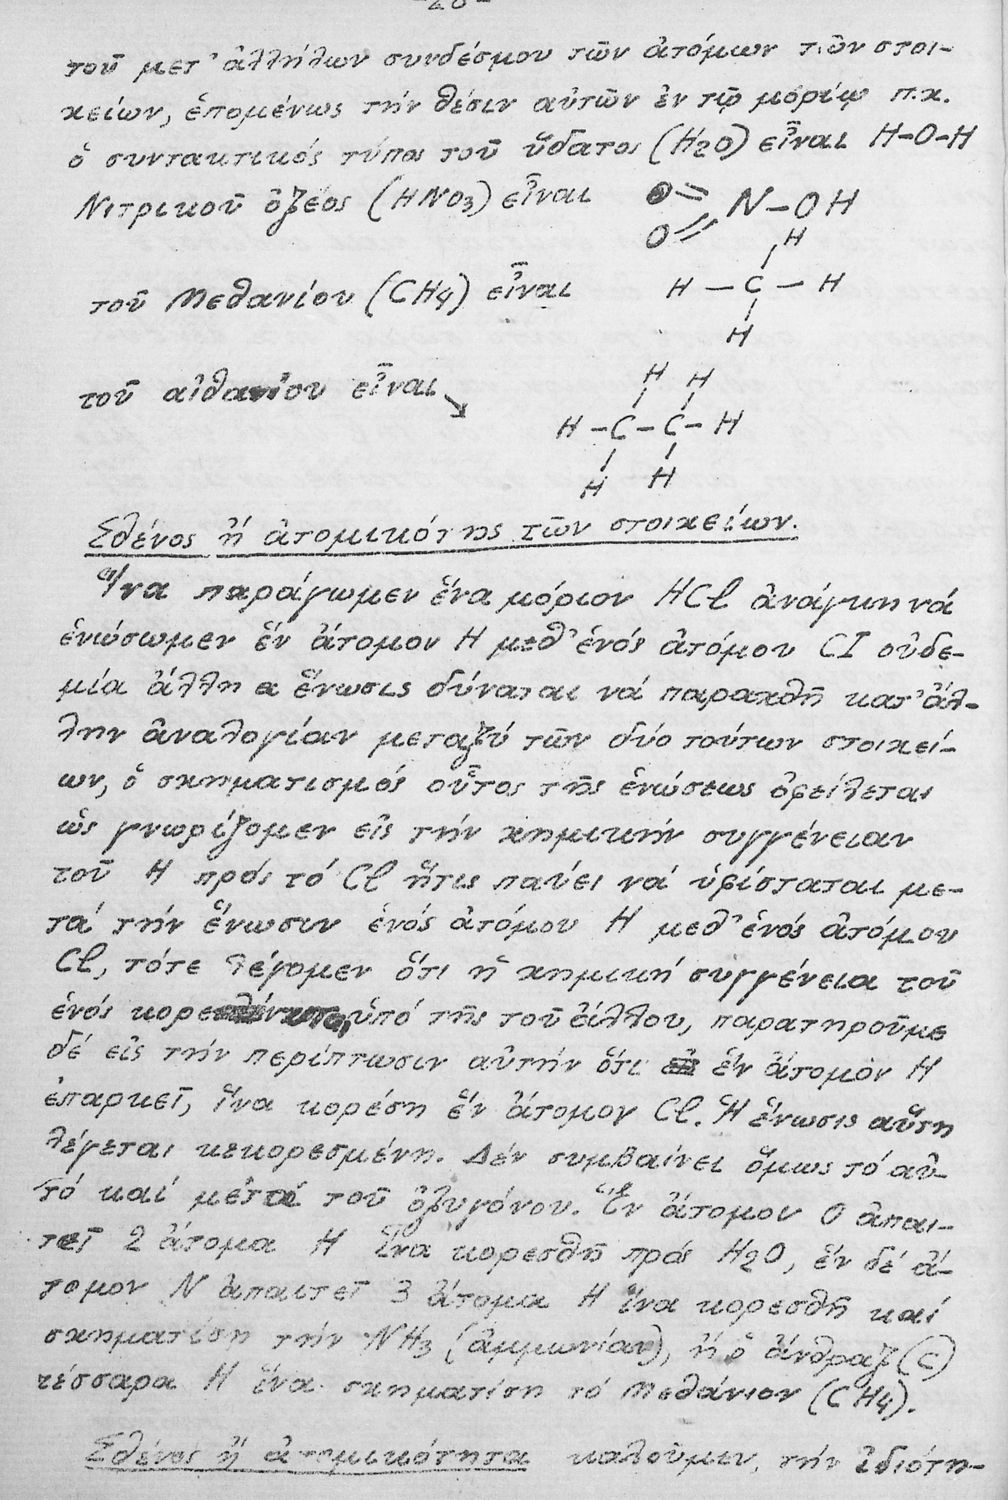 -20-
τοῦ μετ' ἀλλήλων συνδέσμου τῶν ἀτόμων τῶν στοι-
χείων, ἑπομένως τήν θέσιν αὐτῶν ἐν τῷ μορίῳ π.χ.
ὁ συντακτικός τύπος τοῦ ὕδατος (H2O) εἶναι H-O-H
Νιτρικοῦ ὀξέος (HNO3) εἶναι O= N-OH
O=
τοῦ Μεθανίου (CH4) εἶναι
H
H - C - H
H
τοῦ αἰθανίου εἶναι ↘
H H
H - C - C - H
H H
Σθένος ἤ ἀτομικότης τῶν στοιχείων.
Ἵνα παράγωμεν ἕνα μόριον HCl ἀνάγκη νά
ἑνώσωμεν ἕν ἄτομον H μεθ' ἑνός ἀτόμου Cl οὐδε-
μία ἄλλη α ἕνωσις δύναται νά παραχθῇ κατ' ἄλ-
λην ἀναλογίαν μεταξύ τῶν δύο τούτων στοιχεί-
ων, ὁ σχηματισμός οὗτος τῆς ἑνώσεως ὀφείλεται
ὡς γνωρίζομεν εἰς τήν χημικήν συγγένειαν
τοῦ H πρός τό Cl ἥτις παύει νά ὑφίσταται με-
τά τήν ἕνωσιν ἑνός ἀτόμου H μεθ' ἑνός ἀτόμου
Cl, τότε λέγομεν ὅτι ἡ χημική συγγένεια τοῦ
ἑνός ὑπό τῆς τοῦ ἄλλου, παρατηροῦμε
δέ εἰς τήν περίπτωσιν αὐτήν ὅτι ἕν ἄτομον H
ἐπαρκεῖ, ἵνα κορέσῃ ἕν ἄτομον Cl. Ἡ ἕνωσις αὕτη
λέγεται κεκορεσμένη. Δέν συμβαίνει ὅμως τό αὐ-
τό καί μετά τοῦ ὀξυγόνου. Ἕν ἄτομον O ἀπαι-
τεῖ 2 ἄτομα H ἵνα κορεσθῇ πρός H2O, ἕν δέ ἄ-
τομον N ἀπαιτεῖ 3 ἄτομα H ἵνα κορεσθῇ καί
σχηματίσῃ τήν NH3 (ἀμμωνίαν), ἤ ὁ ἄνθραξ (C)
τέσσαρα H ἵνα σχηματίσῃ τό Μεθάνιον (CH4).
Σθένος ἤ ἀτομικότητα καλοῦμεν, τήν ἰδιότη-